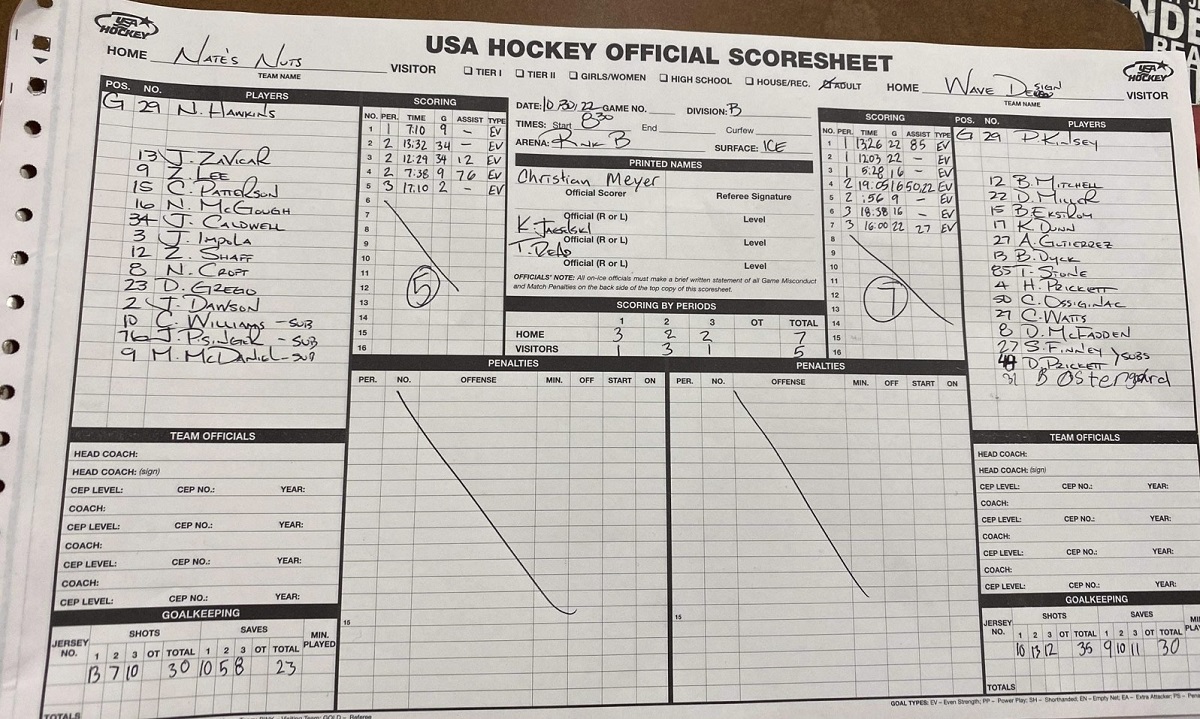 NDE
BEA
USA HOCKEY
USA HOCKEY OFFICIAL SCORESHEET
USA HOCKEY
HOME Nate's Nuts VISITOR
TEAM NAME
TIER I TIER II GIRLS/WOMEN HIGH SCHOOL HOUSE/REC. ADULT
HOME Wave Design VISITOR
TEAM NAME
POS. NO. PLAYERS
G 29 N. Hawkins
13 J. Zavicar
9 Z. Lee
15 C. Patterson
16 N. McGough
34 J. Caldwell
3 J. Impola
12 Z. Shaff
8 N. Croft
23 D. Grego
2 J. Dawson
10 C. Williams - SUB
76 J. Psinger - SUB
9 M. McDaniel - SUB
SCORING
NO. PER. TIME G ASSIST TYPE
1 1 7:10 9 - EV
2 2 13:32 34 - EV
3 2 12:29 34 12 EV
4 2 7:38 9 76 EV
5 3 17:10 2 - EV
6
7
8
9
10
11
12
13
14
15
16
5
DATE: 10.30.22 GAME NO. DIVISION: B
TIMES: Start 8:30 End Curfew
ARENA: Rink B SURFACE: ICE
PRINTED NAMES
Christian Meyer
Official Scorer Referee Signature
Official (R or L) Level
Official (R or L) Level
Official (R or L) Level
OFFICIALS' NOTE: All on-ice officials must make a brief written statement of all Game Misconduct
and Match Penalties on the back side of the top copy of this scoresheet.
SCORING BY PERIODS
1 2 3 OT TOTAL
HOME 3 2 2 7
VISITORS 1 3 1 5
SCORING
NO. PER. TIME G ASSIST TYPE
1 1 13:26 22 85 EV
2 1 12:03 22 - EV
3 1 5:28 16 - EV
4 2 19:05 16 50,22 EV
5 2 :56 9 - EV
6 3 18:58 16 - EV
7 3 16:00 22 27 EV
8
9
10
11
12
13
14
15
16
7
POS. NO. PLAYERS
G 29 P. Kinsey
12 B. Mitchell
22 D. Miller
15 B. Ekstrom
17 K. Dunn
27 A. Gutierrez
13 B. Dyck
85 T. Stone
4 H. Prickett
50 C. Ossignac
21 C. Watts
8 D. McFadden
27 S. Finney
D. Prickett
SUBS
31 B Ostengard
PENALTIES
PER. NO. OFFENSE MIN. OFF START ON
15
PENALTIES
PER. NO. OFFENSE MIN. OFF START ON
15
TEAM OFFICIALS
HEAD COACH:
HEAD COACH: (sign)
CEP LEVEL: CEP NO.: YEAR:
COACH:
CEP LEVEL: CEP NO.: YEAR:
COACH:
CEP LEVEL: CEP NO.: YEAR:
COACH:
CEP LEVEL: CEP NO.: YEAR:
GOALKEEPING
JERSEY NO. SHOTS SAVES MIN. PLAYED
1 2 3 OT TOTAL 1 2 3 OT TOTAL
13 7 10 30 10 5 8 23
TOTALS
TEAM OFFICIALS
HEAD COACH:
HEAD COACH: (sign)
CEP LEVEL: CEP NO.: YEAR:
COACH:
CEP LEVEL: CEP NO.: YEAR:
COACH:
CEP LEVEL: CEP NO.: YEAR:
COACH:
CEP LEVEL: CEP NO.: YEAR:
GOALKEEPING
JERSEY NO. SHOTS SAVES MIN. PLA
1 2 3 OT TOTAL 1 2 3 OT TOTAL
10 13 12 35 9 10 11 30
TOTALS
GOAL TYPES: EV – Even Strength; PP – Power Play; SH – Shorthanded; EN – Empty Net; EA – Extra Attacker; PS – Pena
Visiting Team; GOLD – Referee